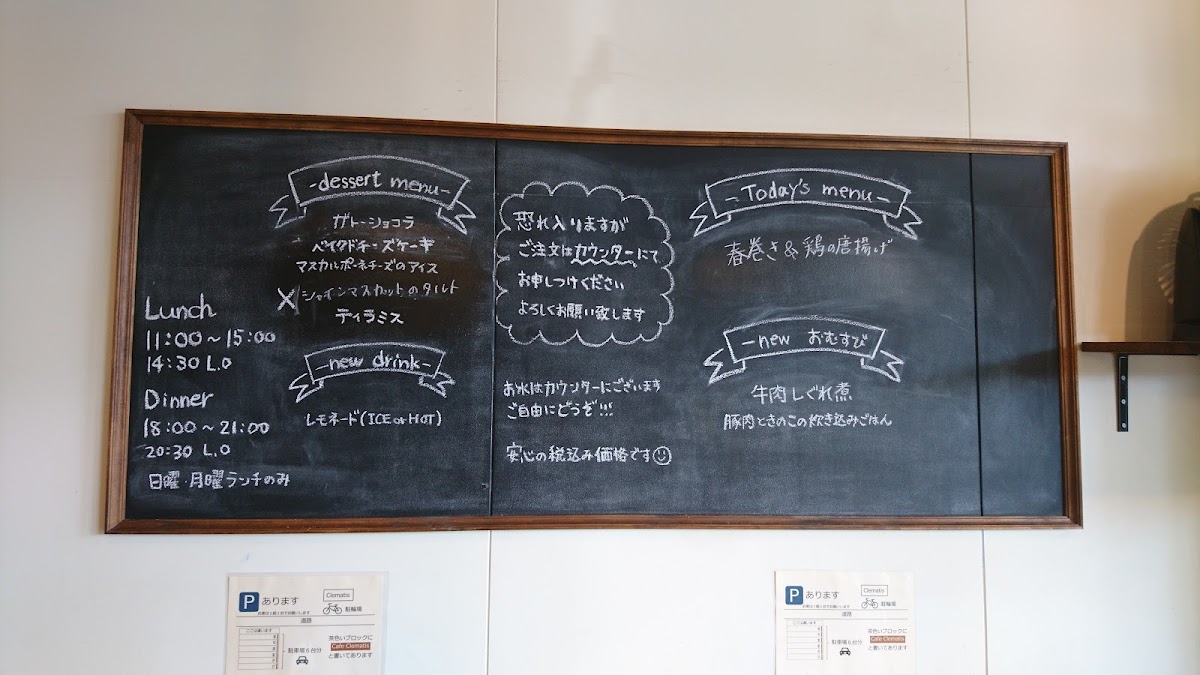 Lunch
11:00～15:00
14:30 L.O
Dinner
18:00～21:00
20:30 L.O
日曜・月曜ランチのみ
-dessert menu-
ガトーショコラ
ベイクドチーズケーキ
マスカルポーネチーズのアイス
X シャインマスカットのタルト
ティラミス
-new drink-
レモネード(ICE or HOT)
恐れ入りますが
ご注文はカウンターにて
お申しつけください
よろしくお願い致します
お水はカウンターにございます
ご自由にどうぞ!!!
安心の税込み価格です
-Today's menu-
春巻き&鶏の唐揚げ
-new おむすび
牛肉しぐれ煮
豚肉ときのこの炊き込みごはん
P あります
Clematis
駐輪場
道路
駐車場6台分
茶色いブロックに
Cafe Clematis
と書いてあります
P あります
Clematis
駐輪場
道路
駐車場6台分
茶色いブロックに
Cafe Clematis
と書いてあります